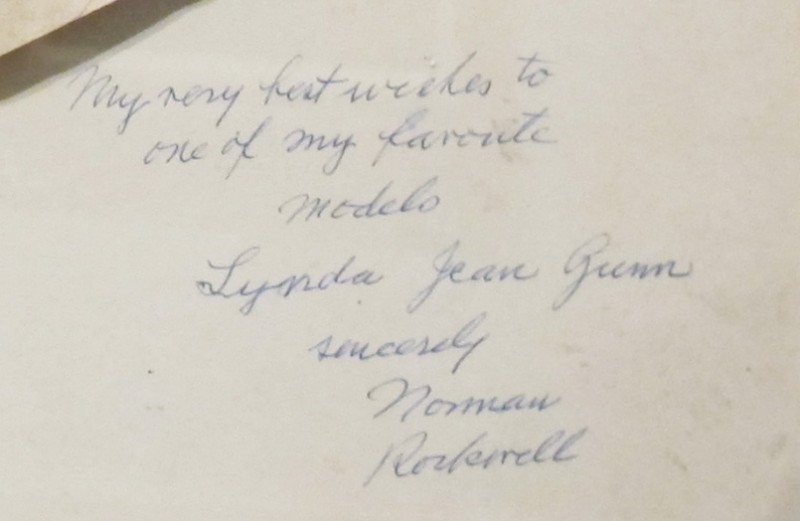 My very best wishes to
one of my favorite
models
Lynda Jean Gunn
sincerely
Norman
Rockwell